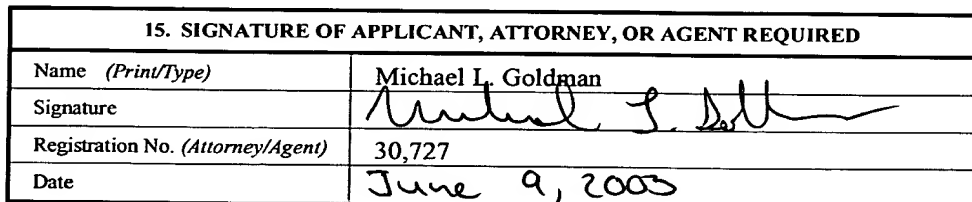 15. SIGNATURE OF APPLICANT, ATTORNEY, OR AGENT REQUIRED
Name (Print/Type) Michael L. Goldman
Signature Michael L. Goldman
Registration No. (Attorney/Agent) 30,727
Date June 9, 2003